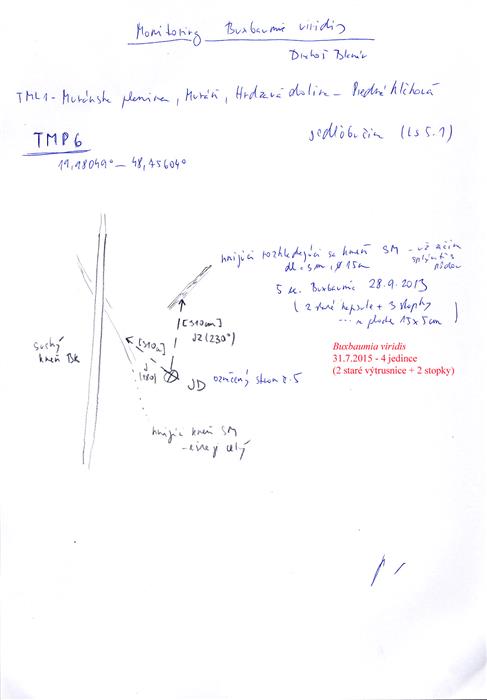 Monitoring Buxbaumia viridis
Drahoš Blanár
TML1 - Muránska planina, Muráň, Hrdzavá dolina - Predná hlboká
TMP6
jedľobučina (Ls 5.1)
19,98049° - 48,75604°
hnijúci rozkladajúci sa kmeň SM - už začína
splývať s pôdou
dl. 3m, ø 15cm
5 ks. Buxbaumia 28.9.2013
(2 staré kapsule + 3 stopky
... na ploche 15x5cm)
[310cm]
JZ (230°)
suchý
kmeň BK
[310cm]
J
(180)
JD označený strom č.5
Buxbaumia viridis
31.7.2015 - 4 jedince
(2 staré výtrusnice + 2 stopky)
hnijúci kmeň SM
- ešte celý